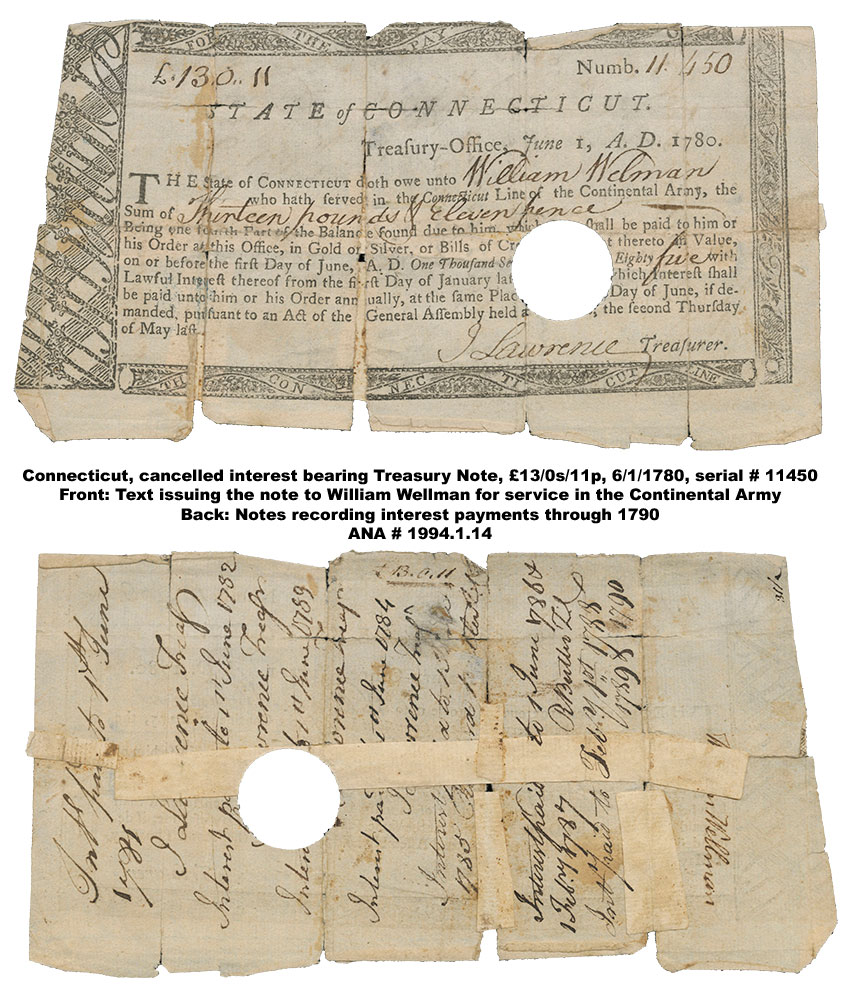 FOR THE PAY
£.13.0..11 Numb. 11.450
STATE of CONNECTICUT.
Treasury-Office, June 1, A. D. 1780.
THE State of CONNECTICUT doth owe unto William Welman
who hath served in the Connecticut Line of the Continental Army, the
Sum of Thirteen pounds & Eleven pence
Being one fourth Part of the Balance found due to him, which shall be paid to him or
his Order at this Office, in Gold or Silver, or Bills of Cre t thereto in Value,
on or before the first Day of June, A. D. One Thousand Se Eighty five with
Lawful Interest thereof from the first Day of January las which Interest shall
be paid unto him or his Order annually, at the same Plac Day of June, if de-
manded, pursuant to an Act of the General Assembly held a ; the second Thursday
of May last.
J Lawrence Treasurer.
TH CON NEC TI CUT LINE
Connecticut, cancelled interest bearing Treasury Note, £13/0s/11p, 6/1/1780, serial # 11450
Front: Text issuing the note to William Wellman for service in the Continental Army
Back: Notes recording interest payments through 1790
ANA # 1994.1.14
Intst paid to 1st June
1781
J La rence Treasr
Interest p to 1st June 1782
rence Treasr
Inter to 1st June 1783
rence Treasr
Interest paid 1st June 1784
rence Treasr
£13.0.11
Interest
1785
Interest paid to 1 June 1786 &
1 Feby 1787 R Butler
Int paid to Feby 1st 1788
1789 & 1790
m Welman